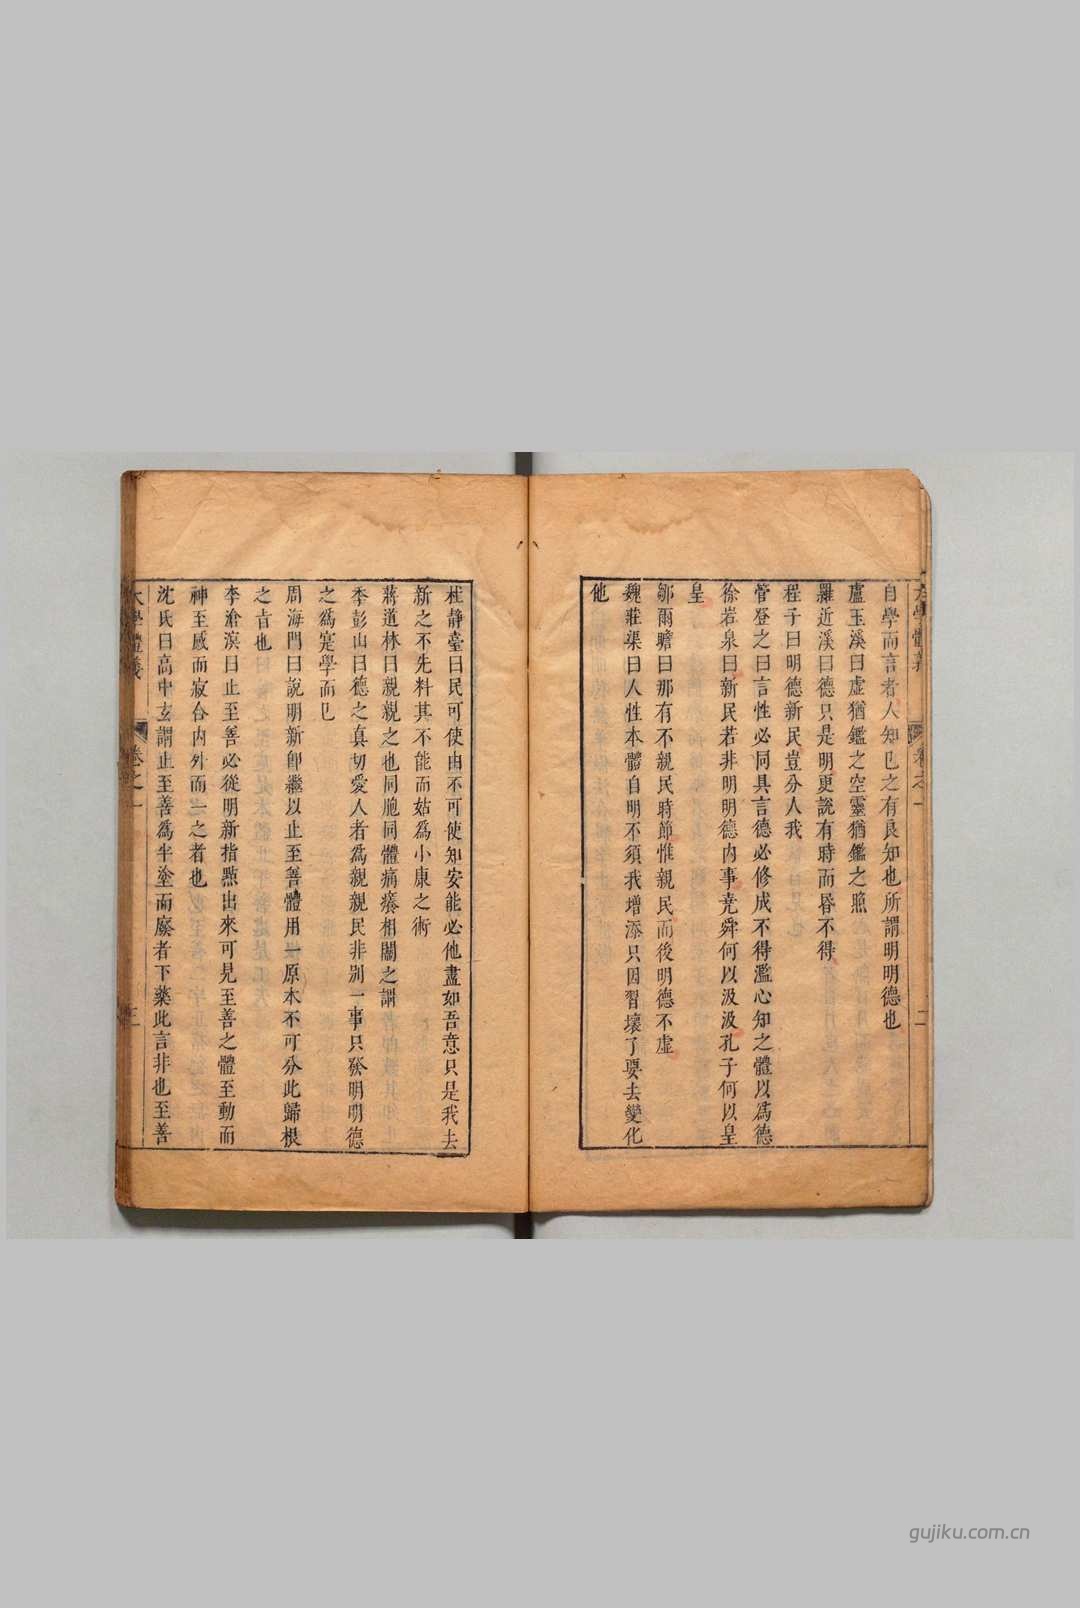 自學而言者人知已之有良知也所謂明明德也
盧玉溪曰虚猶鑑之空靈猶鑑之照
羅近溪曰德只是明更說有時而昏不得
程子曰明德新民豈分人我
管登之曰言性必同具言德必修成不得濫心知之體以爲德
徐岩泉曰新民若非明明德内事堯舜何以汲汲孔子何以皇
皇
鄒爾瞻曰那有不親民時節惟親民而後明德不虚
魏莊渠曰人性本體自明不須我增添只因習壞了要去變化
他
大學體義
卷之一
二
杜靜臺曰民可使由不可使知安能必他盡如吾意只是我去
新之不先料其不能而姑爲小康之術
蔣道林曰親親之也同胞同體痛癢相關之謂
季彭山曰德之真切愛人者爲親親民非别一事只發明明德
之爲寔學而已
周海門曰說明新卽繼以止至善體用一原本不可分此歸根
之旨也
李滄溟曰止至善必從明新指㸃出來可見至善之體至動而
神至感而寂合内外而一之者也
沈氏曰高中玄謂止至善爲半塗而廢者下藥此言非也至善
大學體義
卷之一
三
gujiku.com.cn